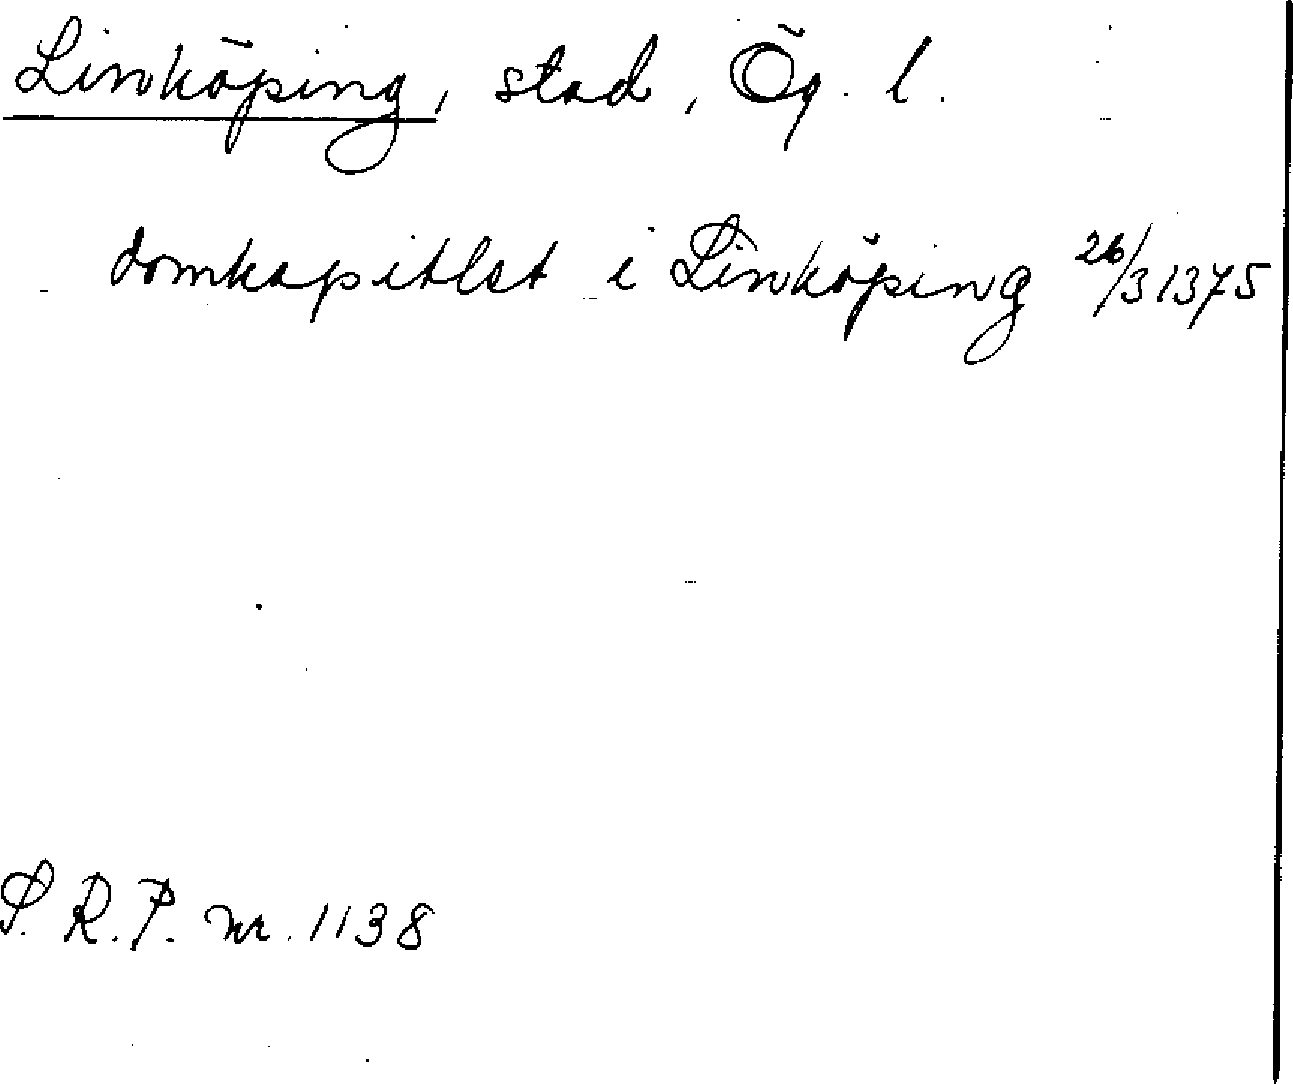 Linköping, stad, Ög. l.
domkapitlet i Linköping 26/3 1375
S. R. P. nr. 1138